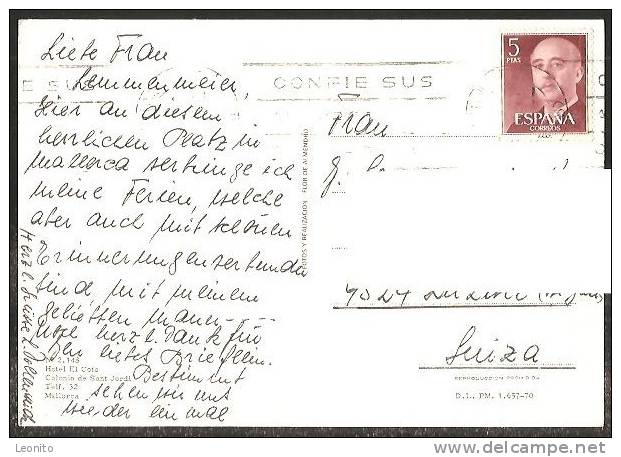 Liebe Frau
Lemmenmeier,
Hier an diesem
herrlichen Platz in
Mallorca verbringe ich
meine Ferien, welche
aber auch mit schönen
Erinnerungen verbunden
sind, mit meinem
geliebten Mann
herzl. Dank für
Ihr liebes Brieflein.
Bestimmt
sehen wir uns
wieder einmal
Herzl. Grüsse
2.148
Hotel El Coto
Colonia de Sant Jordi
Telf. 32
Mallorca
FOTOS Y REALIZACION FLOR DE ALMENDRO
E SUS
CONFIE SUS
5
PTAS
ESPAÑA
CORREOS
Frau
Suiza
REPRODUCCION PROHIBIDA
D.L. PM. 1.657-70
Leonito
delcampe.net